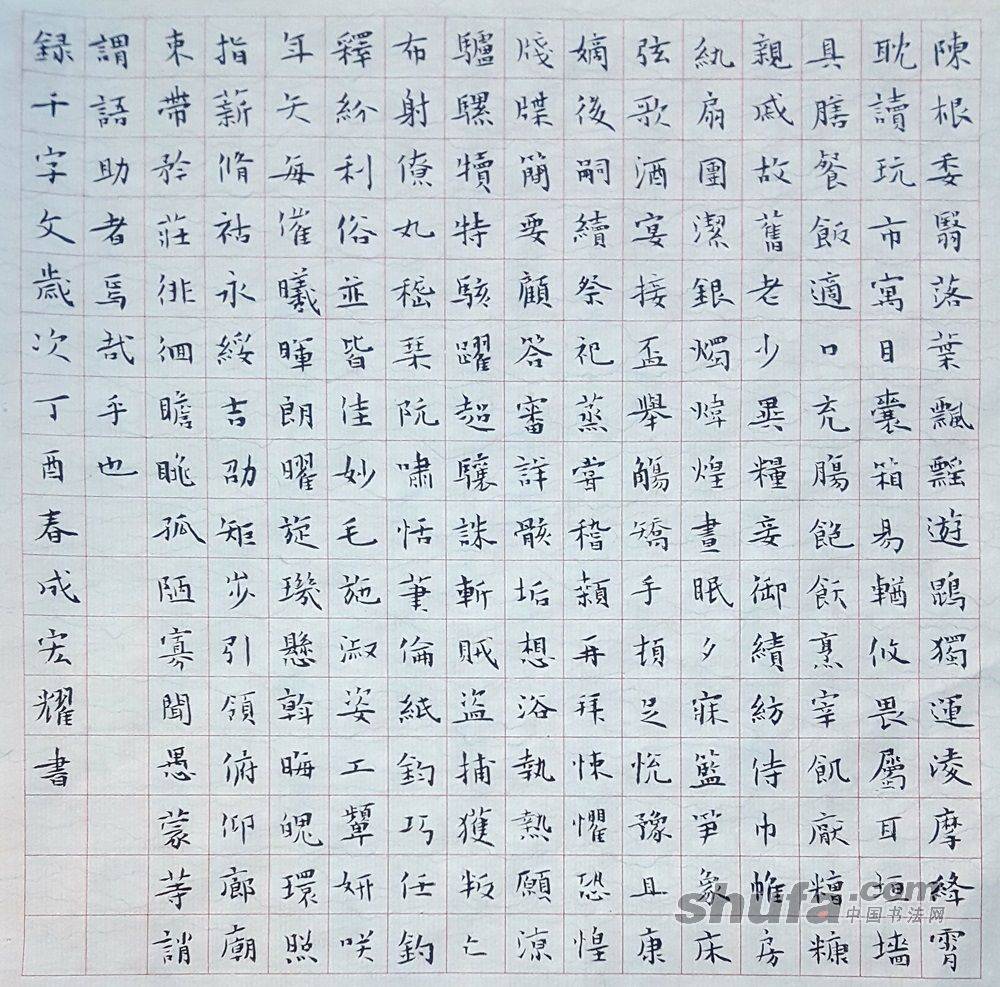 陳根委翳落葉飄颻遊鵾獨運凌摩絳霄
耽讀玩市寓目囊箱易輶攸畏屬耳垣墻
具膳餐飯適口充腸飽飫烹宰飢厭糟糠
親戚故舊老少異糧妾御績紡侍巾帷房
紈扇團潔銀燭煒煌晝眠夕寐籃笋象床
弦歌酒宴接盃舉觴矯手頓足悅豫且康
嫡後嗣續祭祀蒸嘗稽顙再拜悚懼恐惶
牋牒簡要顧答審詳骸垢想浴執熱願涼
驢騾犢特駭躍超驤誅斬賊盜捕獲叛亡
布射僚丸嵇琴阮嘯恬筆倫紙鈞巧任釣
釋紛利俗並皆佳妙毛施淑姿工顰妍咲
年矢每催曦暉朗曜旋璣懸斡晦魄環照
指薪脩祜永綏吉劭矩步引領俯仰廊廟
束帶矜莊徘徊瞻眺孤陋寡聞愚蒙等誚
謂語助者焉哉乎也
録千字文歲次丁酉春成宏耀書
shufa.com
中国书法网